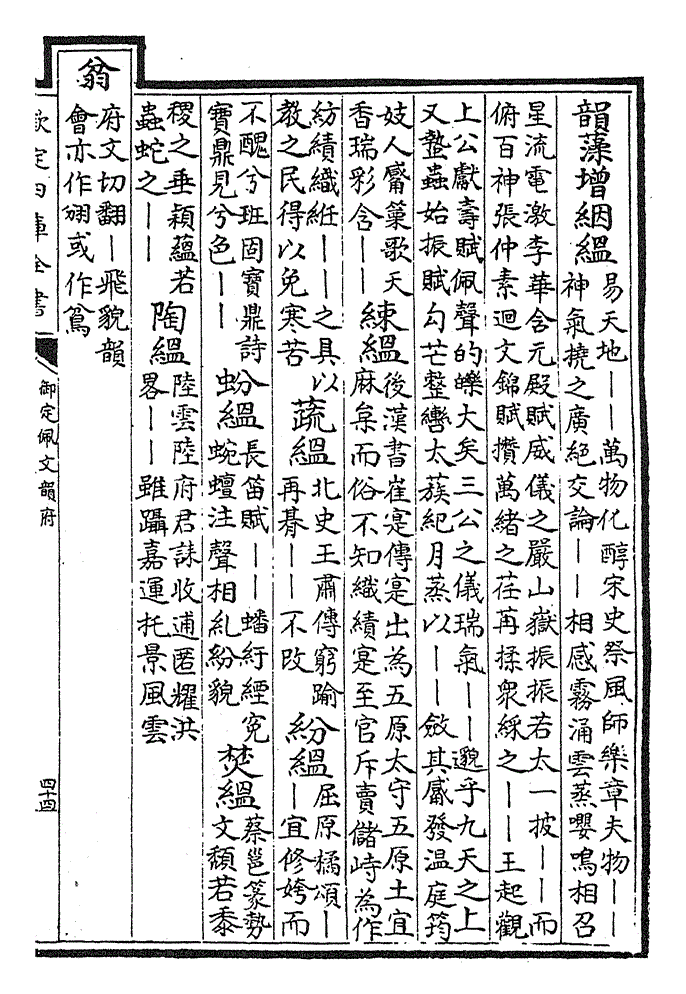 韻藻增絪緼
易天地――萬物化醇宋史祭風師樂章夫物――
神氣撓之廣絕交論――相感霧涌雲蒸嚶鳴相召
星流電激李華含元殿賦威儀之嚴山嶽振振若太一披――而
俯百神張仲素迴文錦賦攢萬緒之荏苒揉衆綵之――王起觀
上公獻壽賦佩聲的皪大矣三公之儀瑞氣――邈乎九天之上
又蟄蟲始振賦勾芒整轡太蔟紀月蒸以――斂其感發温庭筠
妓人歌天
香瑞彩含――
練緼
後漢書崔寔傳寔出為五原太守五原土宜
麻枲而俗不知織績寔至官斥賣儲峙為作
紡績織紝――之具以
教之民得以免寒苦
蔬緼
北史王肅傳窮踰
再朞――不改
紛緼
屈原橘頌―
―宜修姱而
不醜兮班固寶鼎詩
寶鼎見兮色――
蚡緼
長笛賦――蟠紆綎寃
蜿蟺注聲相糺紛貌
焚緼
蔡邕篆勢
文頽若黍
稷之垂穎蘊若
蟲蛇之――
陶緼
陸雲陸府君誄收逋匿耀洪
畧――雖躡嘉運托景風雲
翁
府文切翻―飛貌韻
會亦作翂或作
欽定四庫全書
御定佩文韻府
四十四